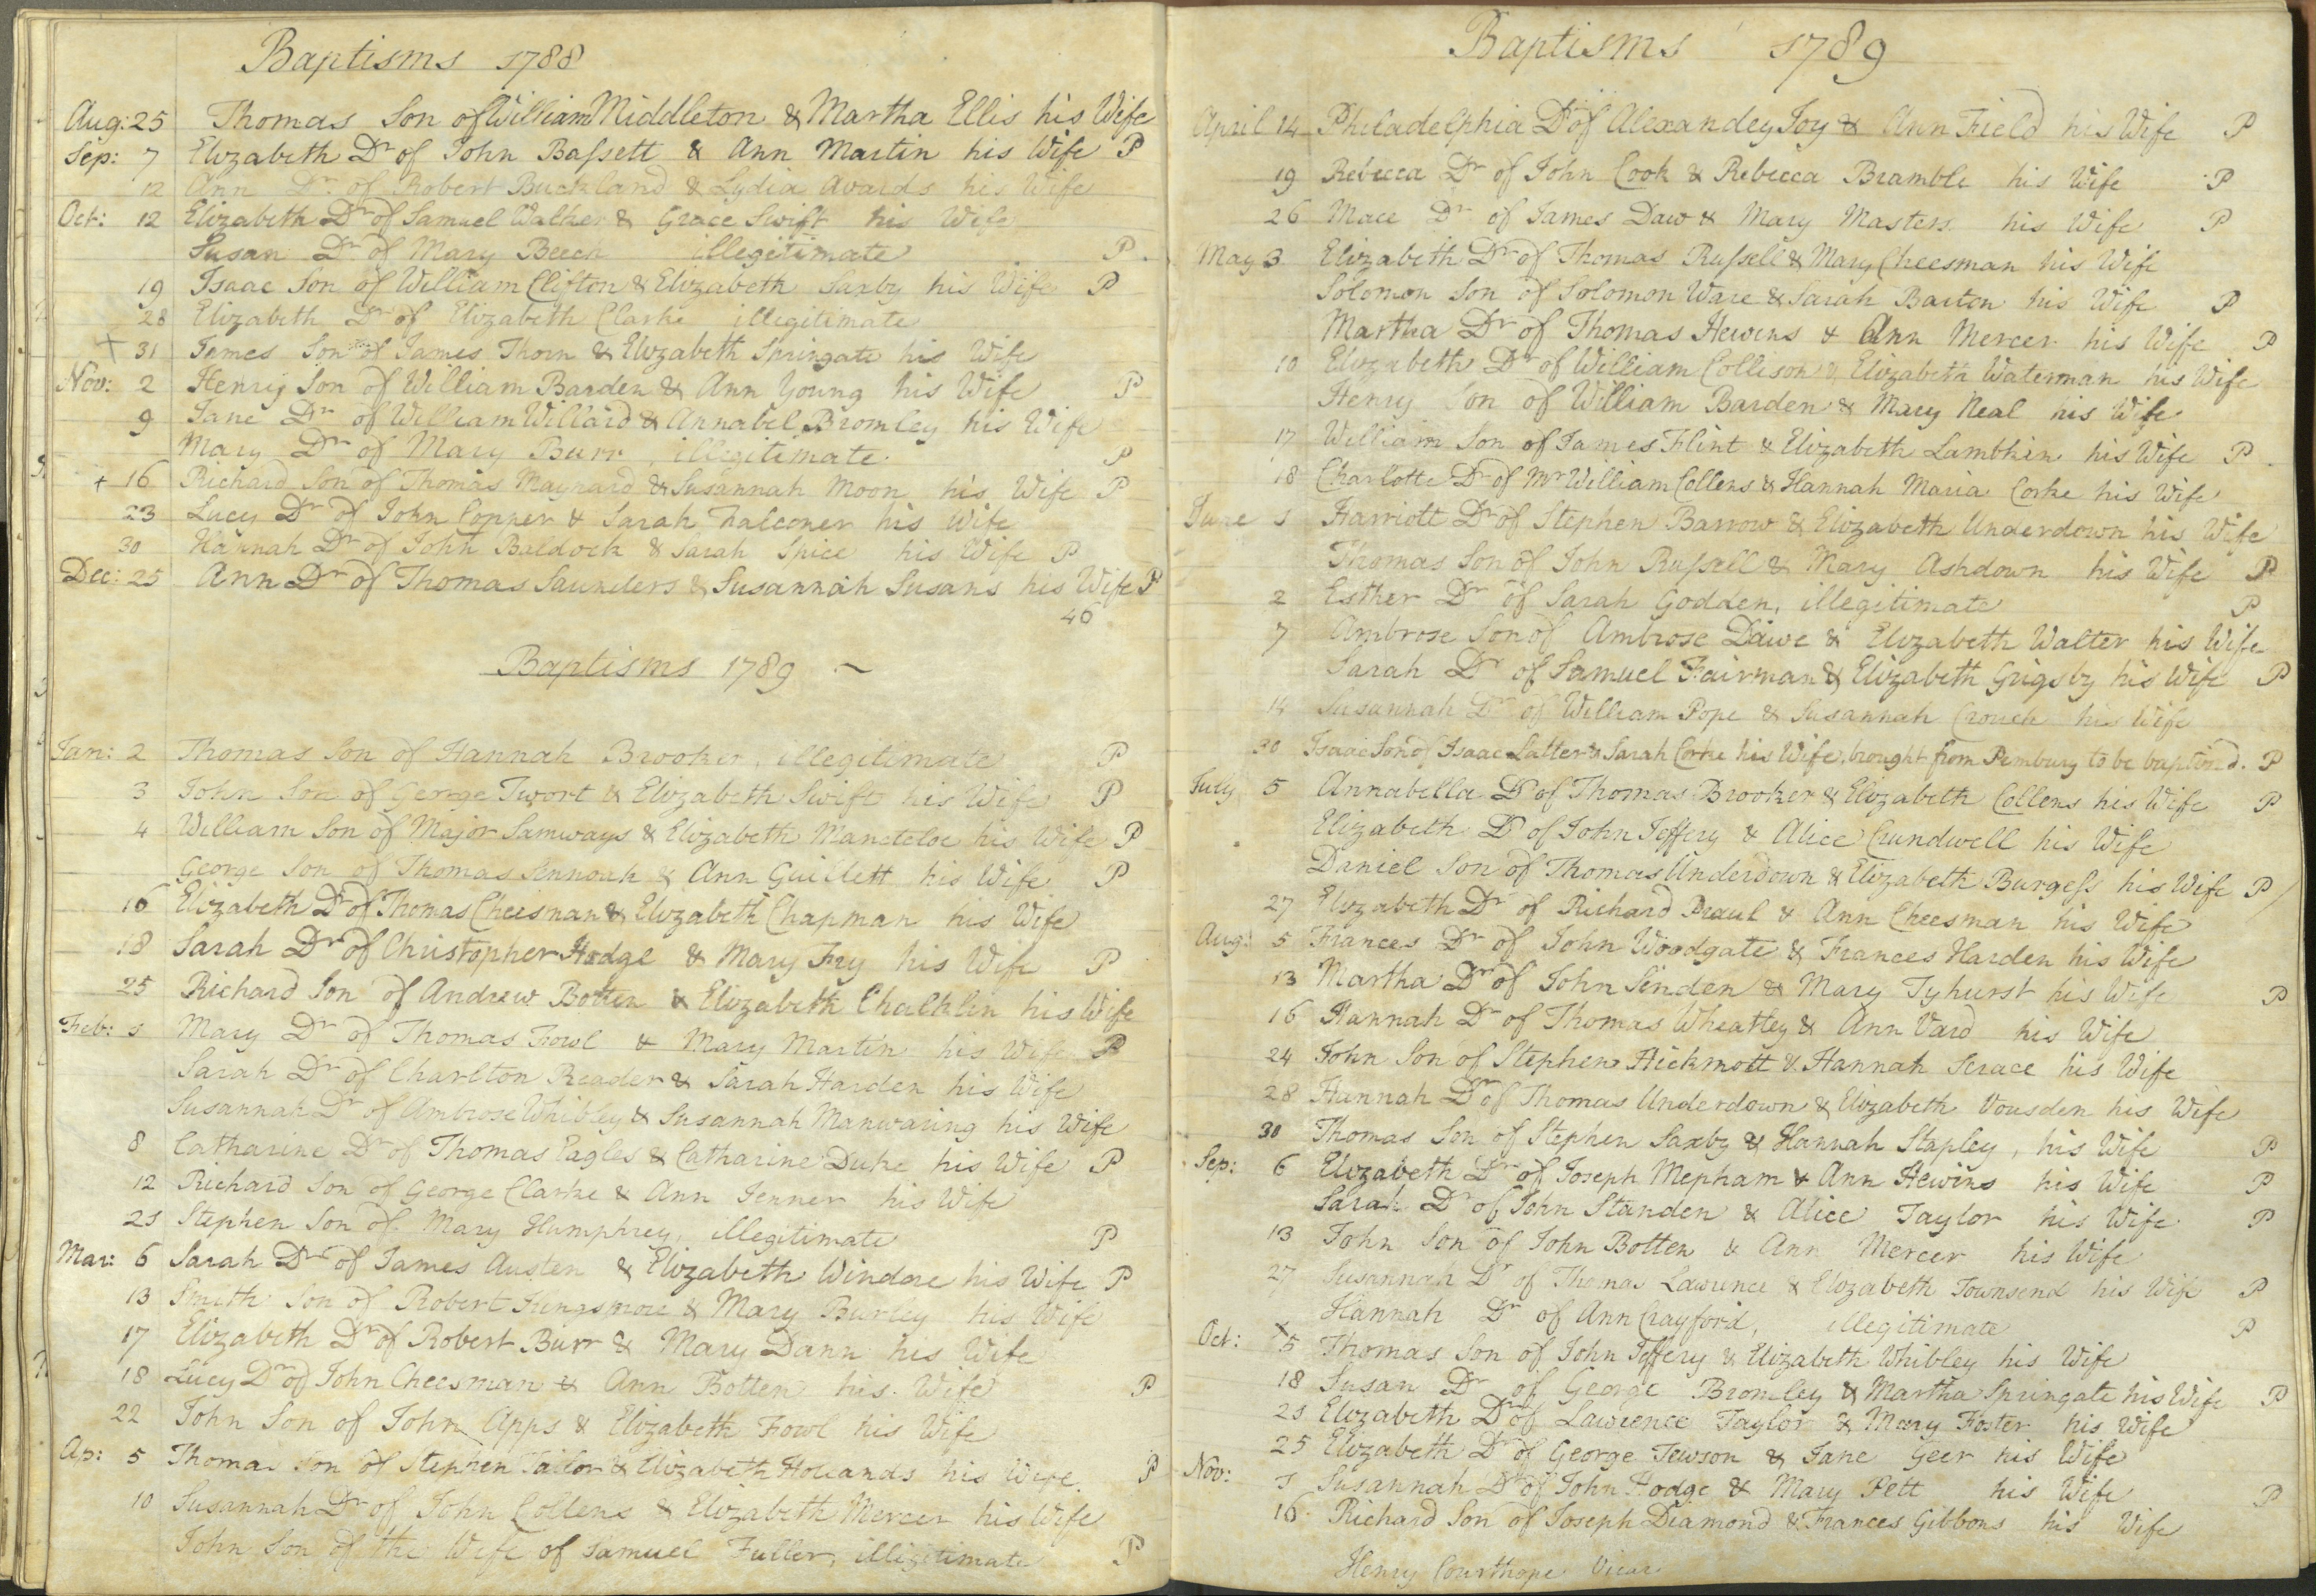 Baptisms 1788
Aug: 25 Thomas Son of William Middleton & Martha Ellis his Wife
Sep: 7 Elizabeth Dr of John Bassett & Ann Martin his Wife P
12 Ann Dr of Robert Buckland & Lydia Avards his Wife
Oct: 12 Elizabeth Dr of Samuel Walker & Grace Swift his Wife
Susan Dr of Mary Beech illegitimate P
19 Isaac Son of William Clifton & Elizabeth Saxby his Wife P
28 Elizabeth Dr of Elizabeth Clarke illegitimate
+ 31 James Son of James Thorn & Elizabeth Springate his Wife
Nov: 2 Henry Son of William Barden & Ann Young his Wife P
9 Jane Dr of William Willard & Annabel Bromley his Wife
Mary Dr of Mary Burr, illegitimate P
+ 16 Richard Son of Thomas Maynard & Susannah Moon his Wife P
23 Lucy Dr of John Copper & Sarah Falconer his Wife
30 Hannah Dr of John Baldock & Sarah Spice his Wife P
Dec: 25 Ann Dr of Thomas Saunders & Susannah Susans his Wife P
46
Baptisms 1789
Jan: 2 Thomas Son of Hannah Brooker, illegitimate P
3 John Son of George Twort & Elizabeth Swift his Wife P
4 William Son of Major Samways & Elizabeth Mankteloe his Wife P
George Son of Thomas Sennoak & Ann Guillett his Wife P
16 Elizabeth Dr of Thomas Cheesman & Elizabeth Chapman his Wife
18 Sarah Dr of Christopher Hodge & Mary Fry his Wife P
25 Richard Son of Andrew Botten & Elizabeth Chalklin his Wife
Feb: 1 Mary Dr of Thomas Fowl & Mary Martin his Wife P
Sarah Dr of Charlton Reader & Sarah Harden his Wife
Susannah Dr of Ambrose Whibley & Susannah Manwaring his Wife
8 Catharine Dr of Thomas Eagles & Catharine Duke his Wife P
12 Richard Son of George Clarke & Ann Jenner his Wife
21 Stephen Son of Mary Humphrey, illegitimate P
Mar: 6 Sarah Dr of James Austen & Elizabeth Windore his Wife P
13 Smith Son of Robert Kingsmore & Mary Burley his Wife
17 Elizabeth Dr of Robert Burr & Mary Dann his Wife
18 Lucy Dr of John Cheesman & Ann Botten his Wife P
22 John Son of John Apps & Elizabeth Fowl his Wife
Ap: 5 Thomas Son of Stephen Tailor & Elizabeth Hollands his Wife P
10 Susannah Dr of John Collens & Elizabeth Mercer his Wife
John Son of the Wife of Samuel Fuller, illigitimate P
Baptisms 1789
April 14 Philadelphia Dr of Alexander Joy & Ann Field his Wife P
19 Rebecca Dr of John Cook & Rebecca Bramble his Wife P
26 Mace Dr of James Daw & Mary Masters his Wife P
May 3 Elizabeth Dr of Thomas Russell & Mary Cheesman his Wife
Solomon Son of Solomon Ware & Sarah Barton his Wife P
Martha Dr of Thomas Hewins & Ann Mercer his Wife P
10 Elizabeth Dr of William Collison & Elizabeth Waterman his Wife
Henry Son of William Barden & Mary Neal his Wife
17 William Son of James Flint & Elizabeth Lambkin his Wife P
18 Charlotte Dr of Mr William Collens & Hannah Maria Corke his Wife
June 1 Harriott Dr of Stephen Barrow & Elizabeth Underdown his Wife
Thomas Son of John Russell & Mary Ashdown his Wife P
2 Esther Dr of Sarah Godden, illegitimate P
7 Ambrose Son of Ambrose Dawe & Elizabeth Walter his Wife
Sarah Dr of Samuel Fairman & Elizabeth Grigsby his Wife P
14 Susannah Dr of William Pope & Susannah Crouch his Wife
30 Isaac Son of Isaac Latter & Sarah Corke his Wife, brought from Pembury to be baptized. P
July 5 Annabella Dr of Thomas Brooker & Elizabeth Collens his Wife P
Elizabeth Dr of John Jeffery & Alice Crundwell his Wife
Daniel Son of Thomas Underdown & Elizabeth Burgess his Wife P
27 Elizabeth Dr of Richard Praul & Ann Cheesman his Wife
Aug: 5 Frances Dr of John Woodgate & Frances Harden his Wife
13 Martha Dr of John Sinden & Mary Tyhurst his Wife P
16 Hannah Dr of Thomas Wheatley & Ann Vard his Wife
24 John Son of Stephen Hickmott & Hannah Scrace his Wife
28 Hannah Dr of Thomas Underdown & Elizabeth Vousden his Wife
30 Thomas Son of Stephen Saxby & Hannah Stapley, his Wife P
Sep: 6 Elizabeth Dr of Joseph Mepham & Ann Hewins his Wife P
Sarah Dr of John Standen & Alice Taylor his Wife P
13 John Son of John Botten & Ann Mercer his Wife
27 Susannah Dr of Thomas Lawrence & Elizabeth Townsend his Wife P
Hannah Dr of Ann Crayford, illegitimate P
Oct: x 5 Thomas Son of John Jeffery & Elizabeth Whibley his Wife
18 Susan Dr of George Bromley & Martha Springate his Wife P
21 Elizabeth Dr of Lawrence Taylor & Mary Foster his Wife
25 Elizabeth Dr of George Jewson & Jane Geer his Wife
Nov: 1 Susannah Dr of John Hodge & Mary Pett his Wife P
16 Richard Son of Joseph Diamond & Frances Gibbons his Wife
Henry Courthope Vicar